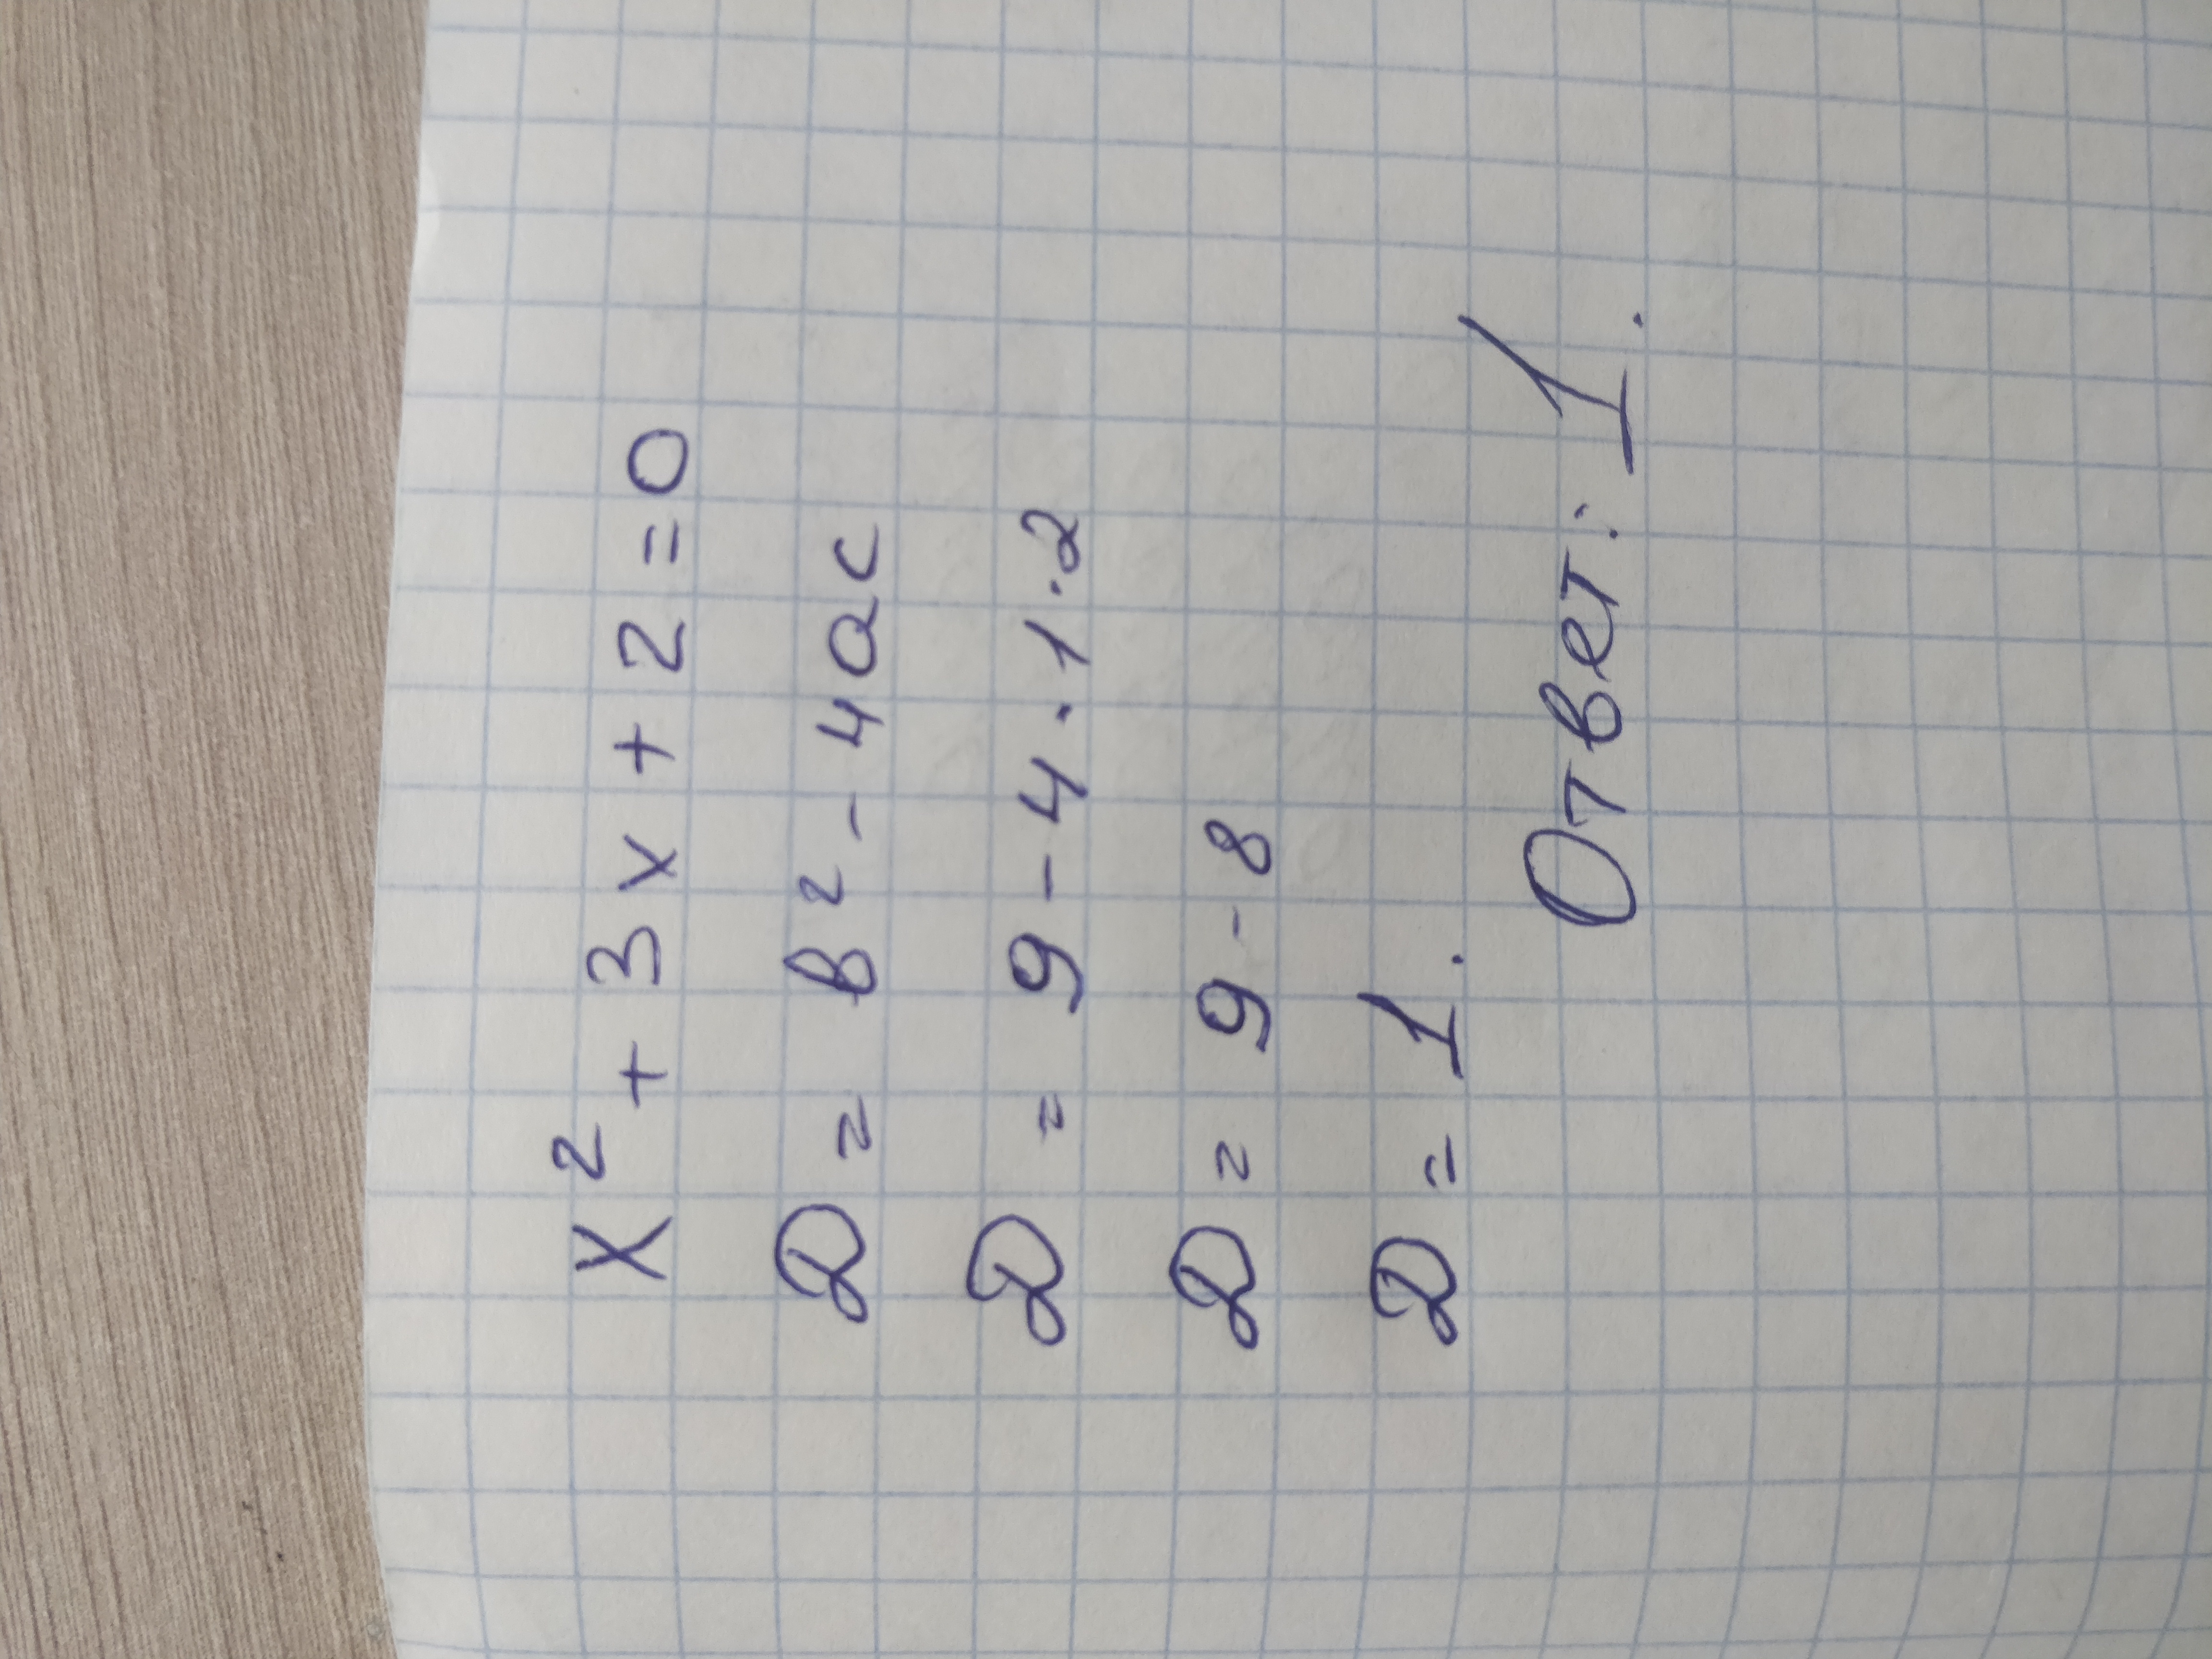 x² + 3x + 2 = 0
D = b² - 4ac
D = 9 - 4 · 1 · 2
D = 9 - 8
D = 1.
Ответ: 1.